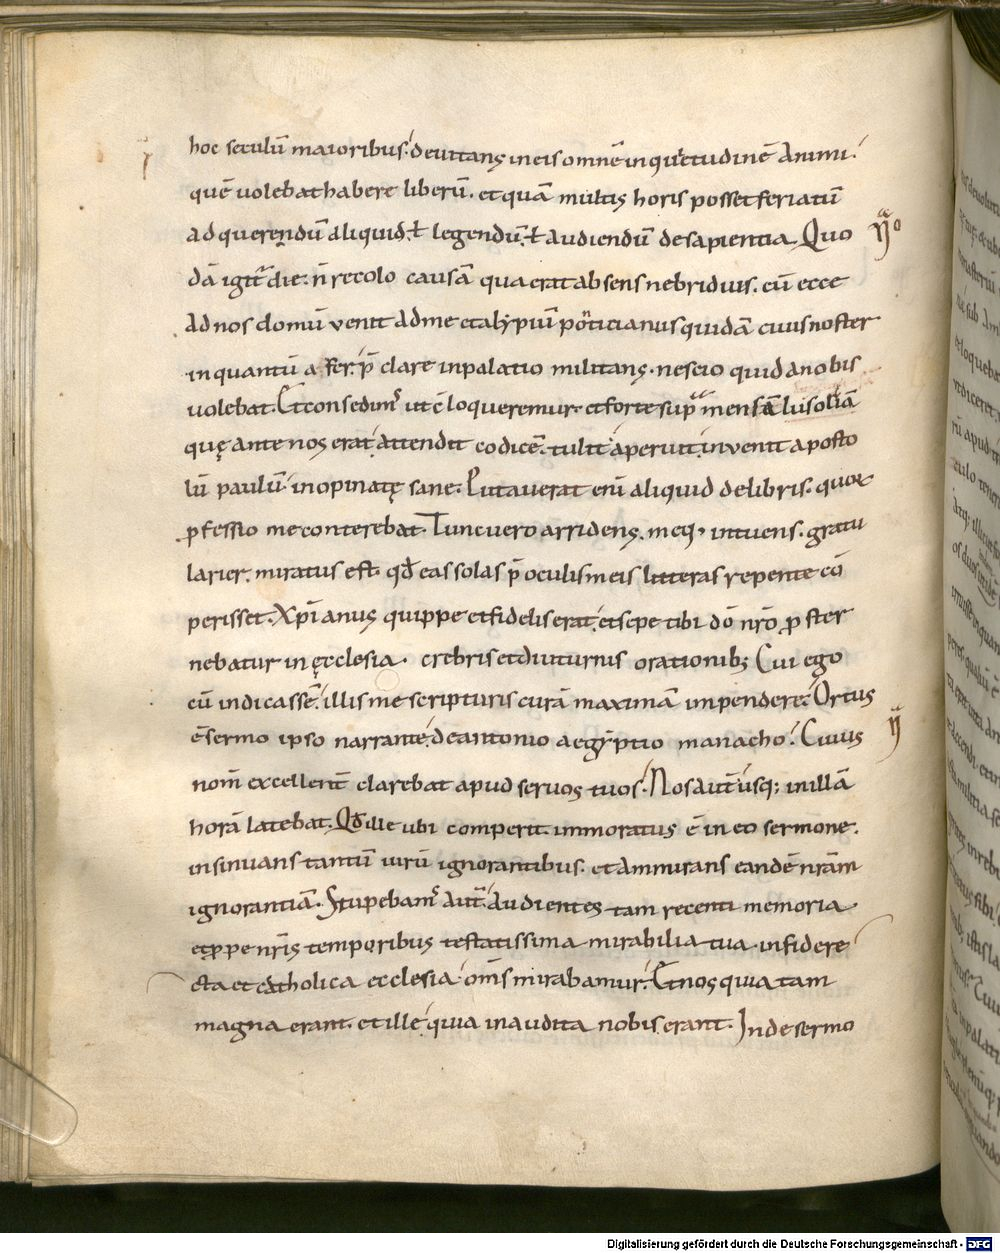 hoc seculū maioribus. deuitans in eis omnē inquietudinē animi.
quē uolebat habere liberū. et quā multis horis posset feriatū
ad querendū aliquid. ł legendū. ł audiendū de sapientia. Quo
dā igit̄ die. n̄ recolo causā qua erat absens nebriduis. cū ecce
ad nos domū venit ad me et alypiū ponticianus quidā ciuis noster
in quantū afer. p̄clare in palatio militans. nescio quid a nobis
uolebat. Et consedim᾿ ut c̄loqueremur. et forte sup̄ mensā lusoriā
quę ante nos erat. attendit codicē. tulit. aperuit. inuenit aposto
lū paulū. inopinatę sane. Putauerat enī aliquid de libris. quorꝝ
ꝓfessio me conterebat. Tunc uero arridens. meq; intuens. gratu
larier. miratus est. qđ eas solas p̄ oculis meis litteras repente cō
perisset. Xp̄ianus quippe et fidelis erat. et sepe tibi dō nr̄o ꝓster
nebatur in ęcclesia. crebris et diuturnis orationib; Cui ego
cū indicassē. illis me scripturis curā maximā impendere. Ortus
ē sermo ipso narrante. de antonio aegyptio manacho. Cuius
nom̄ excellent̄ clarebat apud seruos tuos. Nos aut̄ usq; in illā
horā latebat. Qđ ille ubi comperit. immoratus ē in eo sermone.
insinuans tantū uirū ignorantibus. et ammirans eandē nr̄am
ignorantiā. Stupebam᾿ aut̄ audientes tam recenti memoria
et ꝓpe nr̄is temporibus testatissima mirabilia tua. in fide re
cta et catholica ecclesia. om̄s mirabamur. Et nos quia tam
magna erant. et ille. quia inaudita nobis erant. Inde sermo
Digitalisierung gefördert durch die Deutsche Forschungsgemeinschaft - DFG